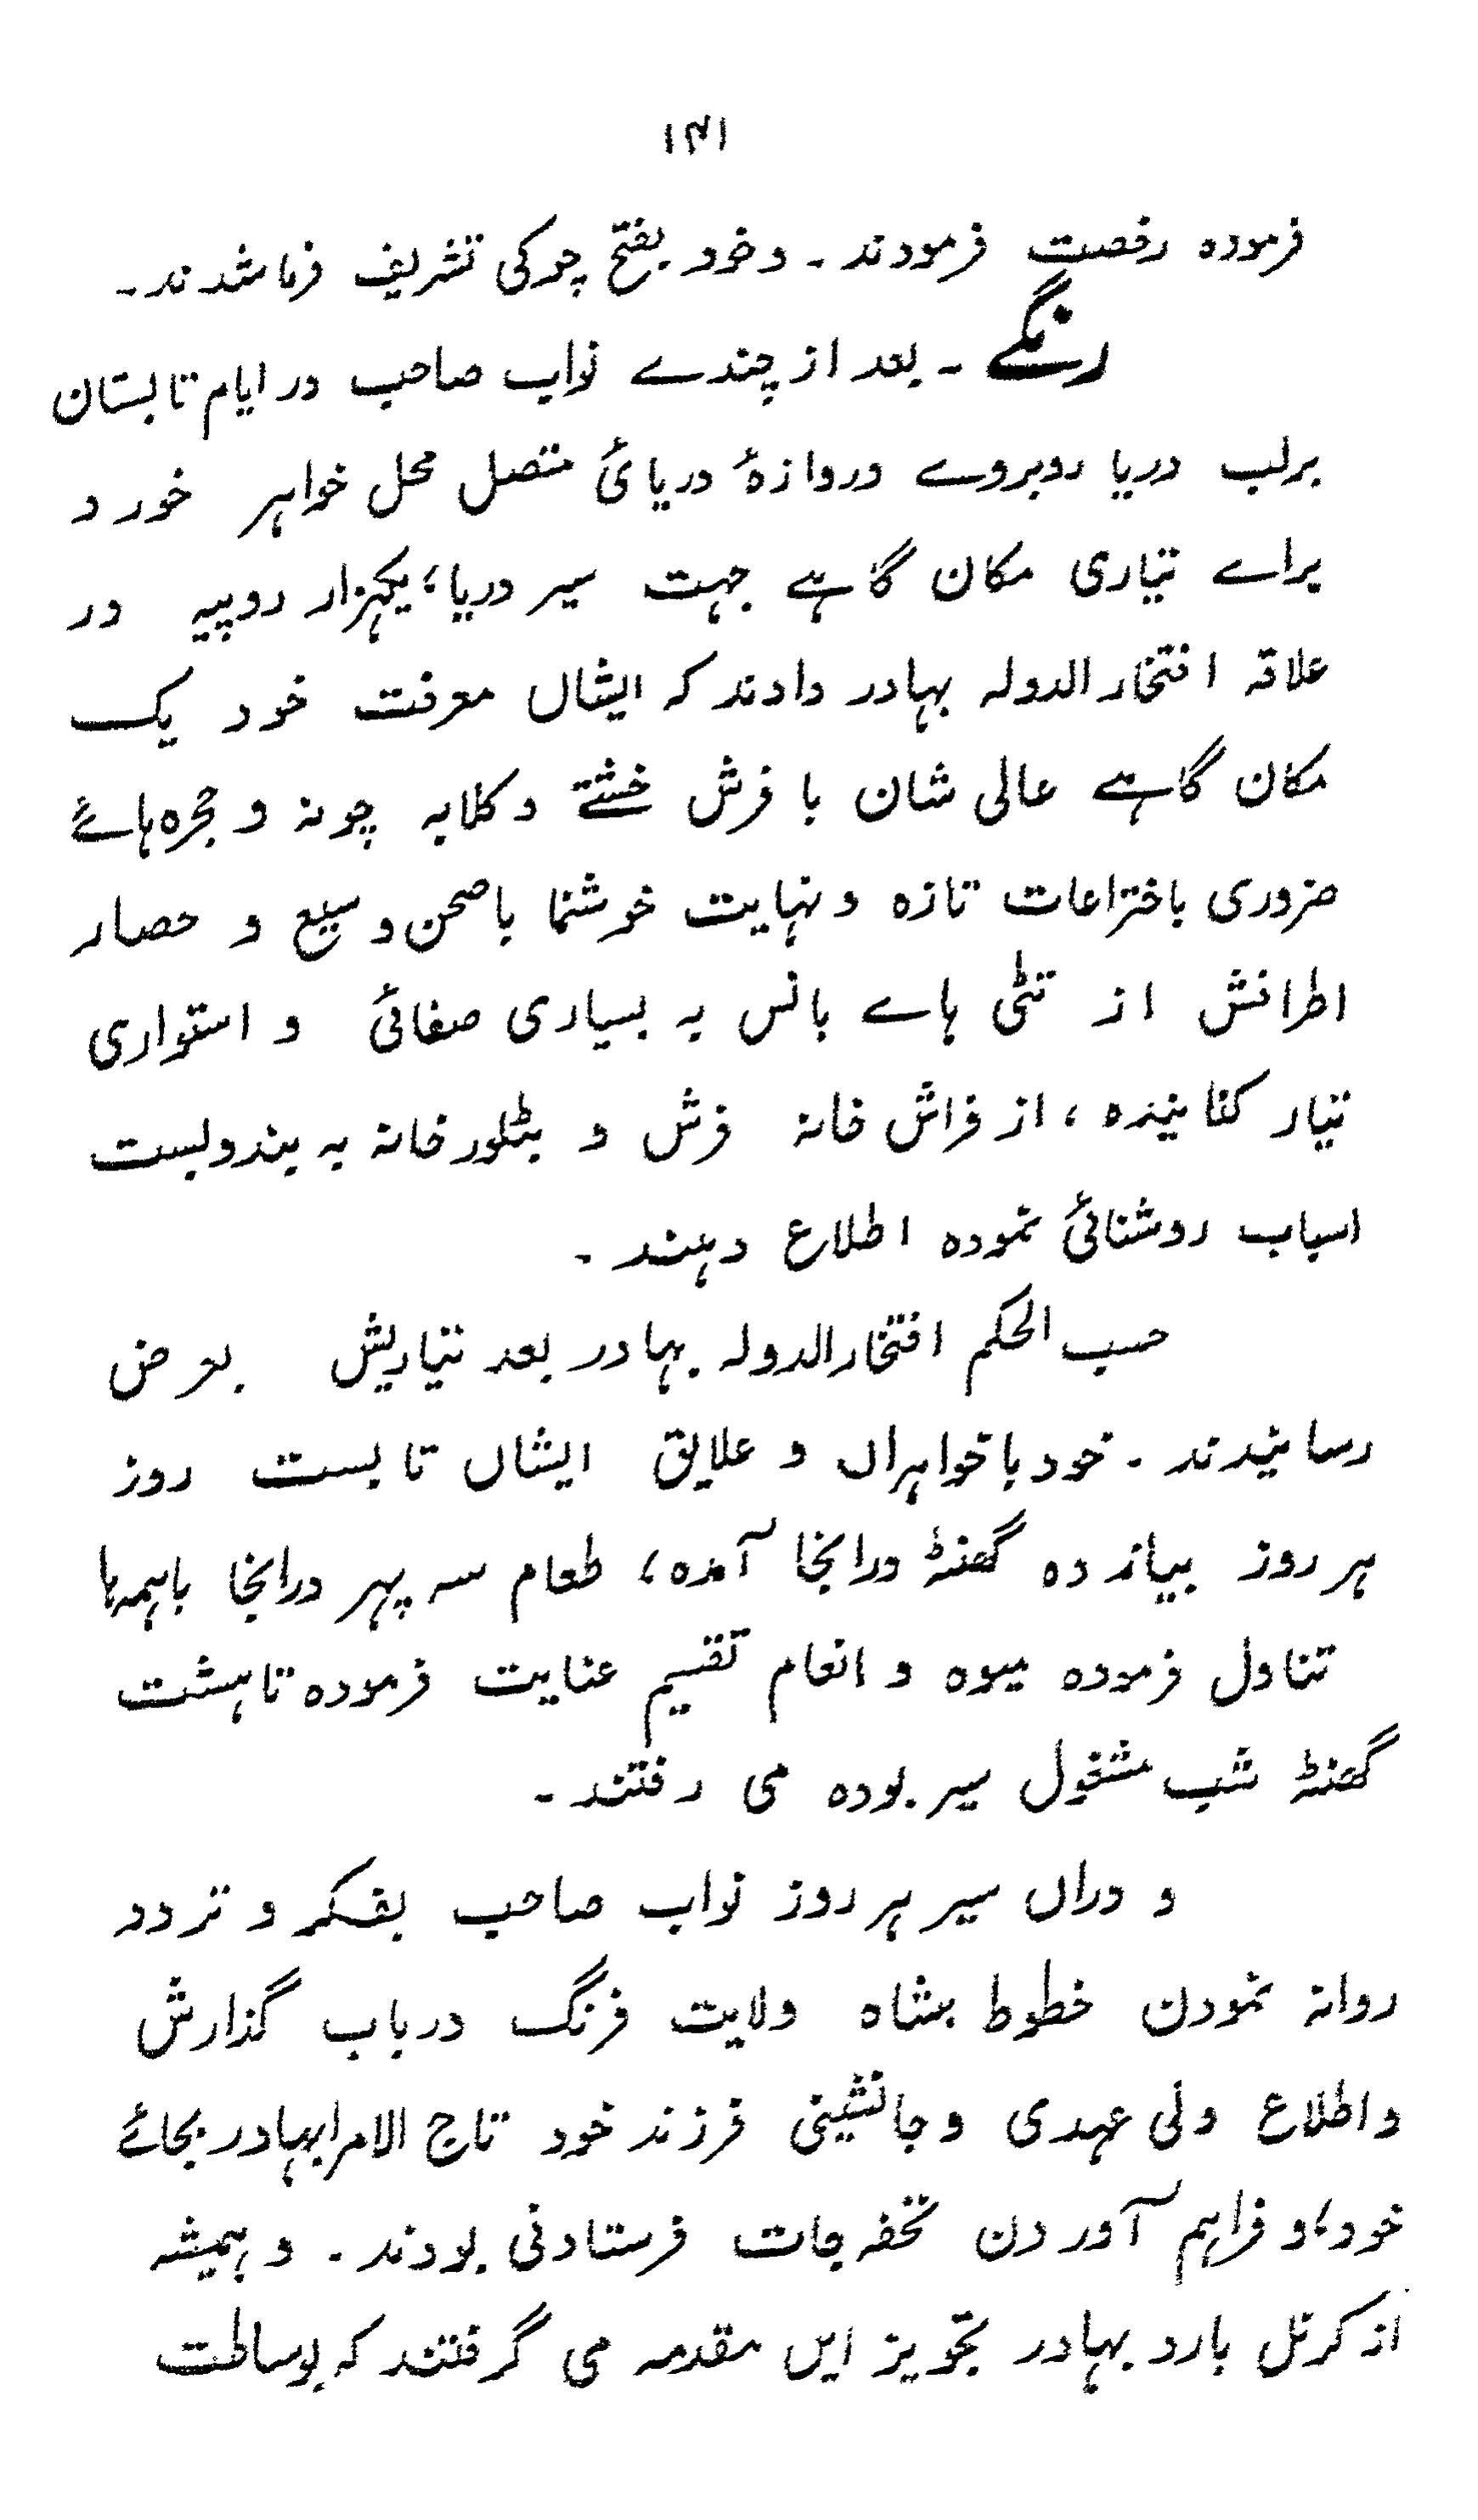 ۱۴۱
فرموده رخصت فرمودند ۔ و خود بفتح چوکی تشریف فرما شدند ۔
رنگے ۔ بعد از چندے نواب صاحب در ایام تابستان
بر لب دریا روبروے دروازۂ دریائی متصل محل خواہر خورد
براے تیاری مکان گاہے جہت سیر دریا؛ یکہزار روپیہ در
علاقہ افتخار الدولہ بہادر دادند کہ ایشاں معرفت خود یک
مکان گاہے عالی شان با فرش خشتے و کلابہ چونہ و حجرہ ہائے
ضروری باختراعات تازہ و نہایت خوشنما با صحن وسیع و حصار
اطرافش از تٹی ہاے بانس بہ بسیاری صفائی و استواری
تیار کنانیدہ، از فراش خانہ فرش و بٹلور خانہ بہ بندوبست
اسباب روشنائی نمودہ اطلاع دہند ۔
حسب الحکم افتخار الدولہ بہادر بعد تیاریش بعرض
رسانیدند ۔ خود با خواہراں و علایق ایشاں تا بست روز
ہر روز بیازدہ گھنٹہ درانجا آمدہ، طعام سہ پہر درانجا باہمہا
تناول فرمودہ میوہ و انعام تقسیم عنایت فرمودہ تا ہشت
گھنٹہ شب مشغول سیر بودہ می رفتند ۔
و دراں سیر ہر روز نواب صاحب بفکر و تردد
روانہ نمودن خطوط بشاہ ولایت فرنگ در باب گذارش
و اطلاع ولی عہدی و جانشینی فرزند خود تاج الامرا بہادر بجائے
خود، و فراہم آوردن تحفہ جات فرستادنی بودند ۔ و ہمیشہ
از کرنل بارد بہادر تجویز ایں مقدمہ می گرفتند کہ بوساطت